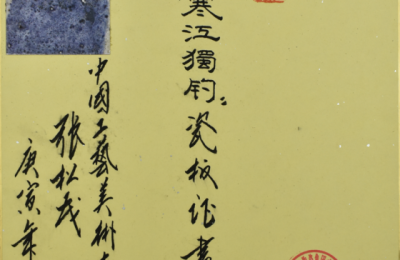 寒江獨钓瓷板证書
中國工藝美術大
張松茂
庚寅年